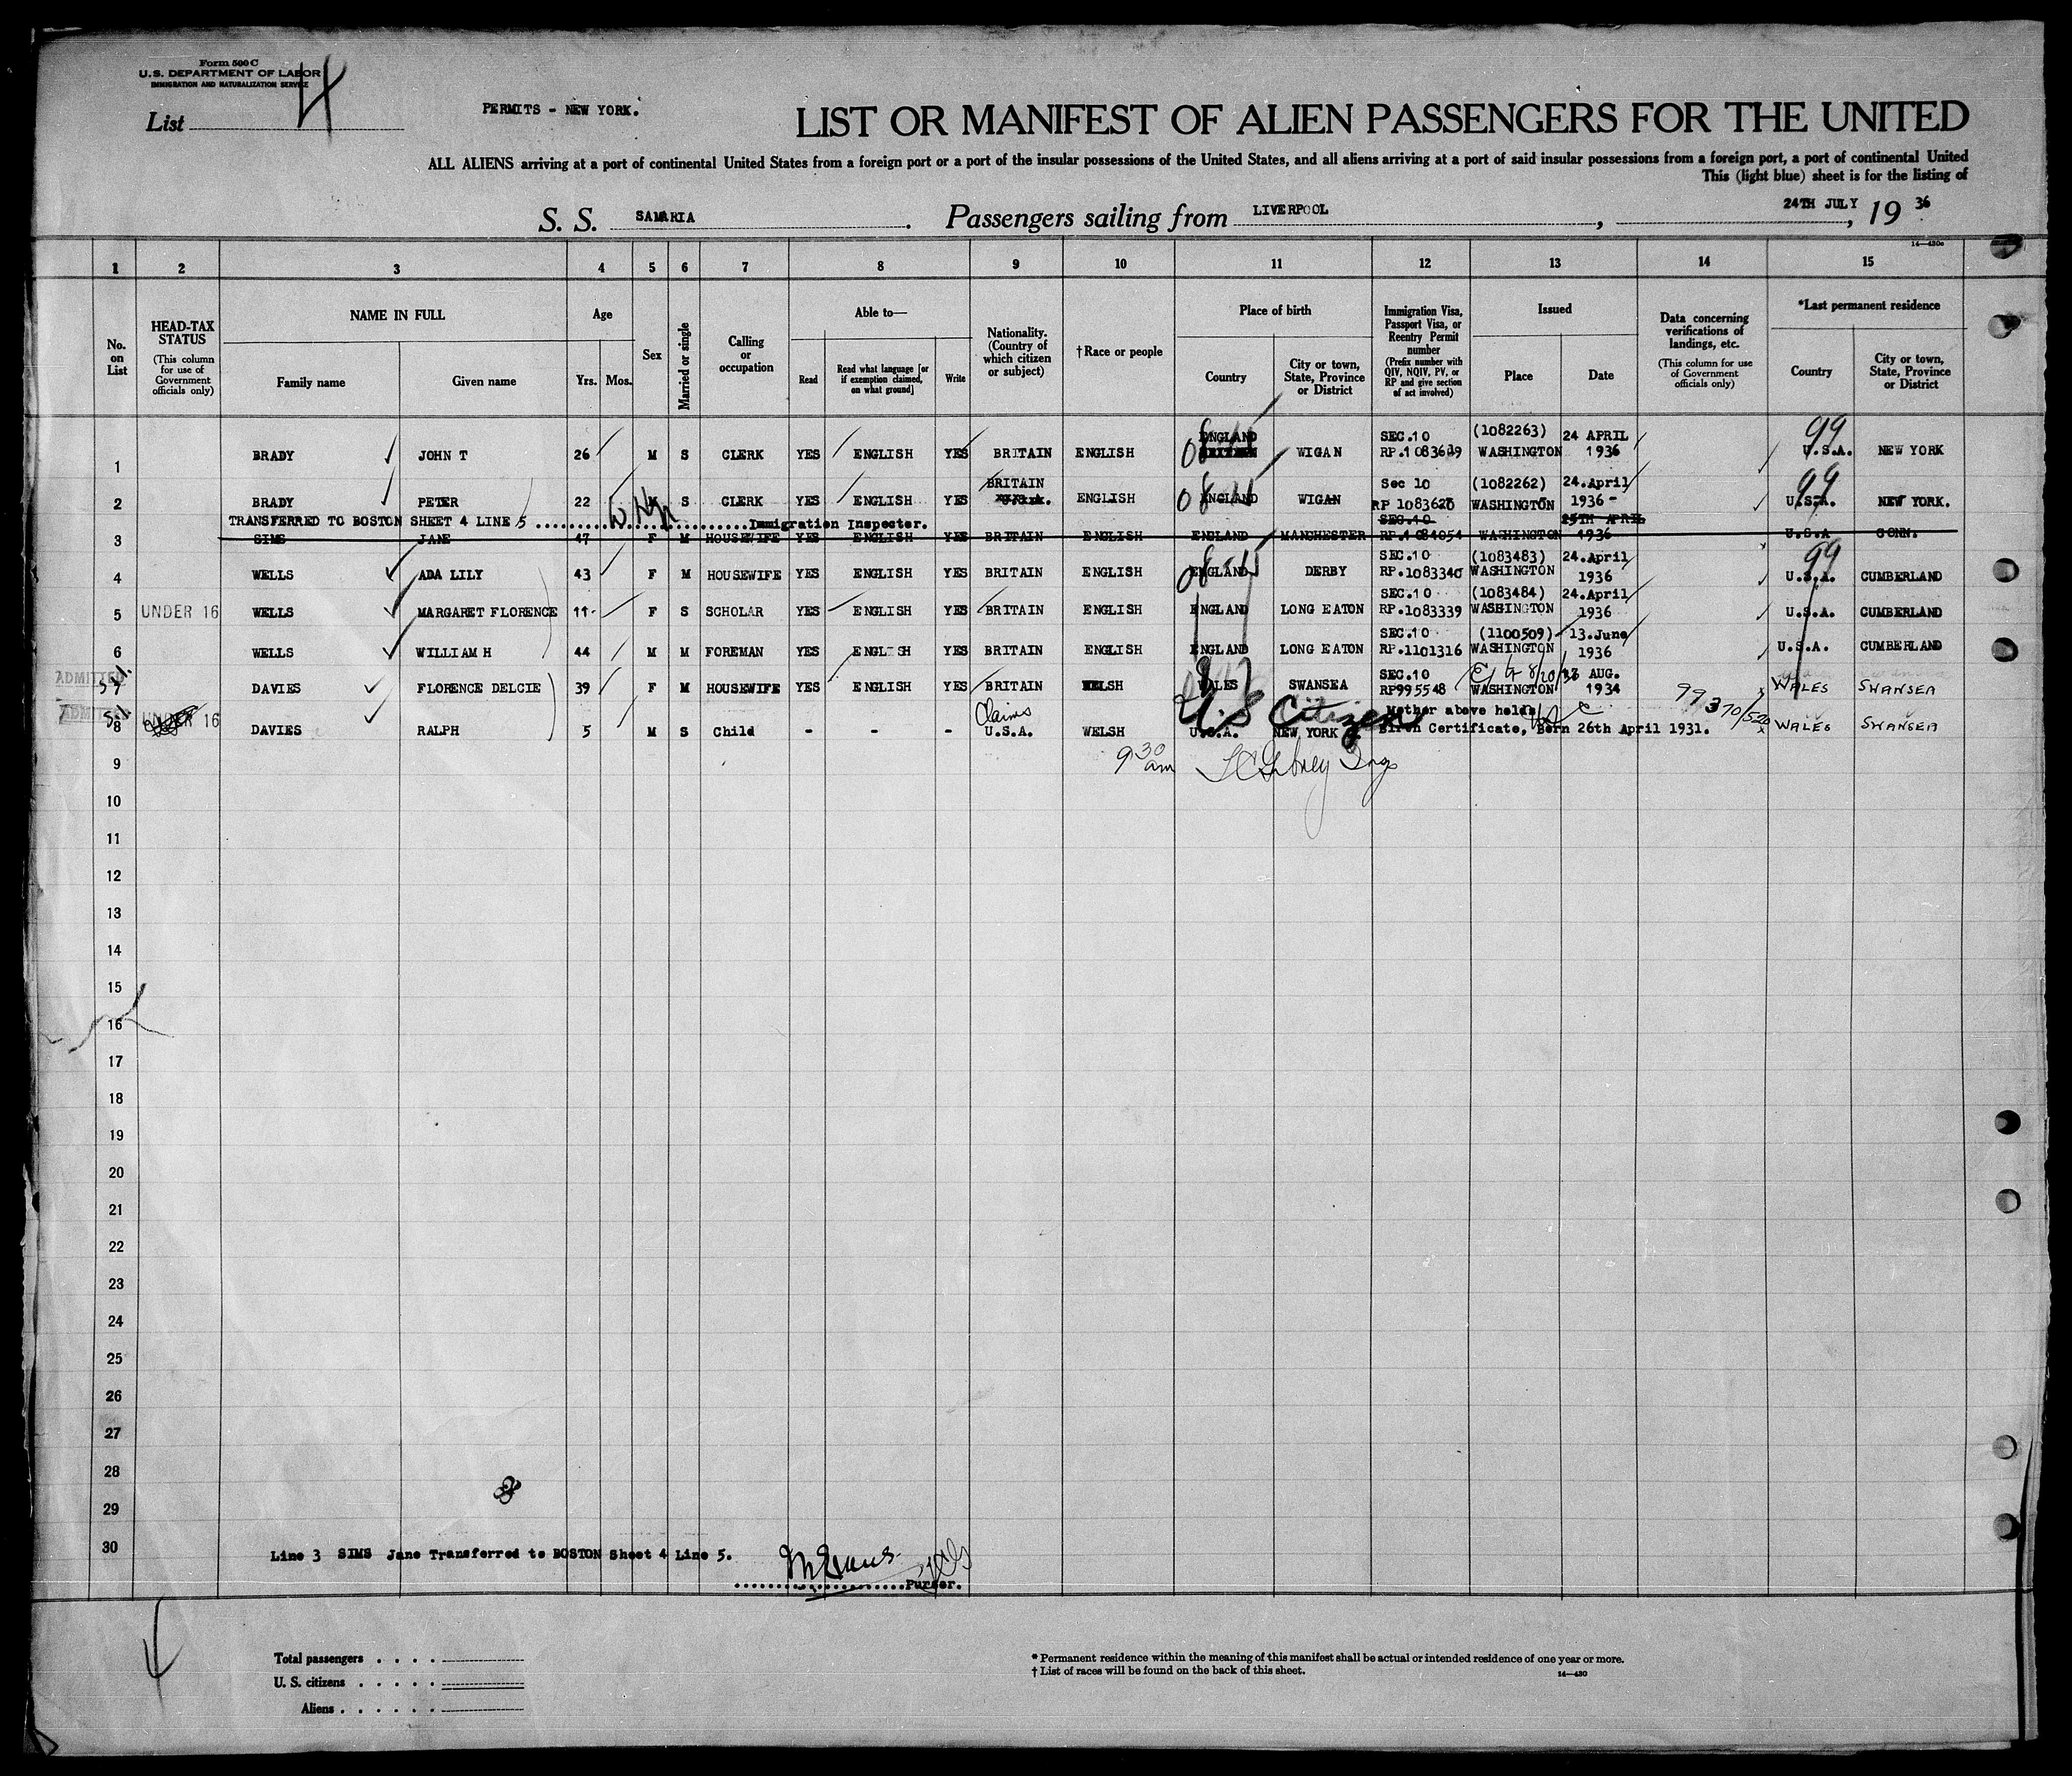 Form 500 C
U.S. DEPARTMENT OF LABOR
IMMIGRATION AND NATURALIZATION SERVICE
List 4
PERMITS - NEW YORK.
LIST OR MANIFEST OF ALIEN PASSENGERS FOR THE UNITED
ALL ALIENS arriving at a port of continental United States from a foreign port or a port of the insular possessions of the United States, and all aliens arriving at a port of said insular possessions from a foreign port, a port of continental United
This (light blue) sheet is for the listing of
S. S. SAMARIA. Passengers sailing from LIVERPOOL, 24TH JULY, 19 36
14-430c
1 2 3 4 5 6 7 8 9 10 11 12 13 14 15
No. on List
HEAD-TAX STATUS (This column for use of Government officials only)
NAME IN FULL Family name Given name
Age Yrs. Mos.
Sex
Married or single
Calling or occupation
Able to— Read Read what language [or if exemption claimed, on what ground] Write
Nationality. (Country of which citizen or subject)
†Race or people
Place of birth Country City or town, State, Province or District
Immigration Visa, Passport Visa, or Reentry Permit number (Prefix number with QIV, NQIV, PV, or RP and give section of act involved)
Issued Place Date
Data concerning verifications of landings, etc. (This column for use of Government officials only)
*Last permanent residence Country City or town, State, Province or District
1 BRADY JOHN T 26 M S CLERK YES ENGLISH YES BRITAIN ENGLISH ENGLAND WIGAN SEC.10 RP.1083649 (1082263) WASHINGTON 24 APRIL 1936 99 U.S.A. NEW YORK
2 BRADY PETER 22 M S CLERK YES ENGLISH YES BRITAIN ENGLISH ENGLAND WIGAN Sec 10 RP 1083620 (1082262) WASHINGTON 24.April 1936 99 U.S.A. NEW YORK.
TRANSFERRED TO BOSTON SHEET 4 LINE 5 Immigration Inspector.
3 SIMS JANE 47 F M HOUSEWIFE YES ENGLISH YES BRITAIN ENGLISH ENGLAND MANCHESTER SEC.10 RP.1084054 WASHINGTON 25TH APRIL 1936 U.S.A CONN.
4 WELLS ADA LILY 43 F M HOUSEWIFE YES ENGLISH YES BRITAIN ENGLISH ENGLAND DERBY SEC.10 RP.1083340 (1083483) WASHINGTON 24.April 1936 99 U.S.A. CUMBERLAND
5 UNDER 16 WELLS MARGARET FLORENCE 11 F S SCHOLAR YES ENGLISH YES BRITAIN ENGLISH ENGLAND LONG EATON SEC.10 RP.1083339 (1083484) WASHINGTON 24.April 1936 U.S.A. CUMBERLAND
6 WELLS WILLIAM H 44 M M FOREMAN YES ENGLISH YES BRITAIN ENGLISH ENGLAND LONG EATON SEC.10 RP.1101316 (1100509) WASHINGTON 13.June 1936 U.S.A. CUMBERLAND
ADMITTED
7 DAVIES FLORENCE DELCIE 39 F M HOUSEWIFE YES ENGLISH YES BRITAIN WELSH WALES SWANSEA SEC.10 RP995548 WASHINGTON AUG. 1934 WALES SWANSEA
ADMITTED
8 UNDER 16 DAVIES RALPH 5 M S Child - - - Claims U.S.A. WELSH U.S.A. NEW YORK U.S Citizen Mother above holds Birth Certificate, Born 26th April 1931. WALES SWANSEA
99 370/520
9 9 30 am
10
11
12
13
14
15
16
17
18
19
20
21
22
23
24
25
26
27
28
29
30
Line 3 SIMS Jane Transferred to BOSTON Sheet 4 Line 5.
Purser.
4
Total passengers
U. S. citizens
Aliens
* Permanent residence within the meaning of this manifest shall be actual or intended residence of one year or more.
† List of races will be found on the back of this sheet.
14-430